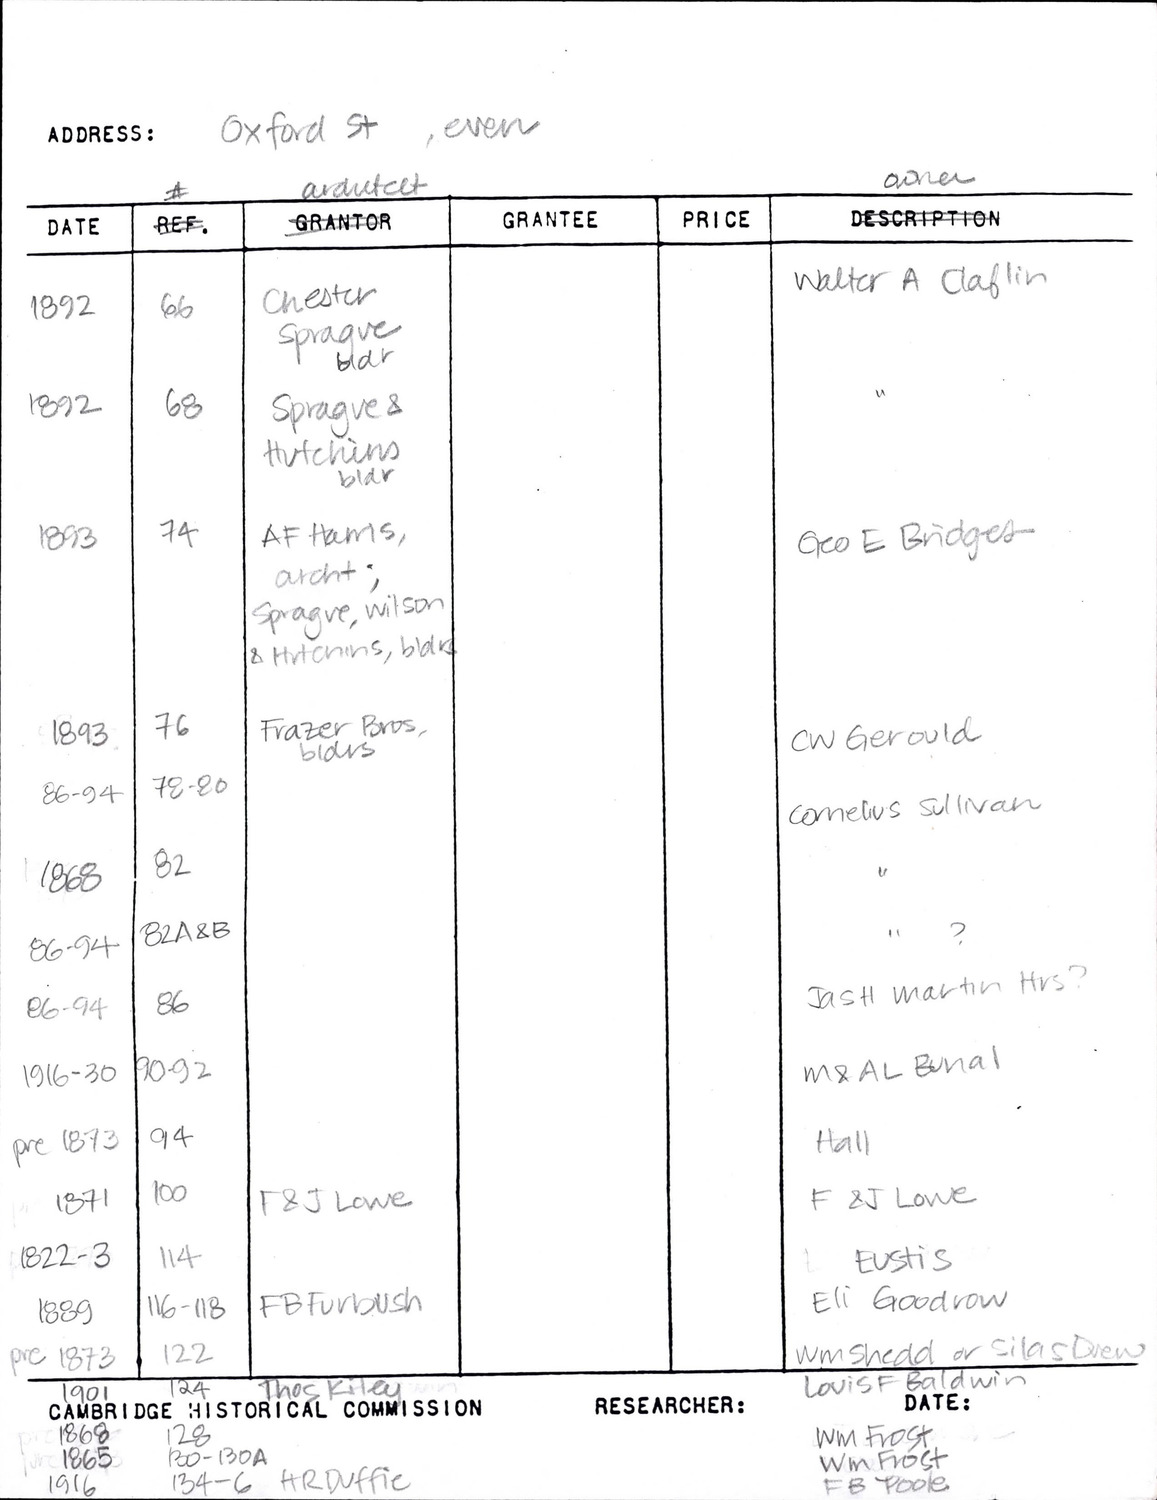 ADDRESS: Oxford St , even
# architect owner
DATE REF. GRANTOR GRANTEE PRICE DESCRIPTION
Walter A Claflin
1892 66 Chester
Sprague
bldr
1892 68 Sprague & "
Hutchins
bldr
1893 74 AF Harris, Geo E Bridges
archt ;
Sprague, Wilson
& Hutchins, bldrs
1893 76 Frazer Bros, CW Gerould
bldrs
86-94 78-80 Cornelius Sullivan
1868 82 "
86-94 82A&B " ?
86-94 86 Jas H Martin Hrs?
1916-30 90-92 M & AL
pre 1873 94 Hall
1871 100 F & J Lowe F & J Lowe
1822-3 114 Eustis
1889 116-118 FB Furbush Eli Goodrow
pre 1873 122 Wm Shedd or Silas Drew
1901 124 Thos Kiley Louis F Baldwin
CAMBRIDGE HISTORICAL COMMISSION RESEARCHER: DATE:
1868 128 Wm Frost
1865 130-130A Wm Frost
1916 134-6 HR Duffie FB Poole